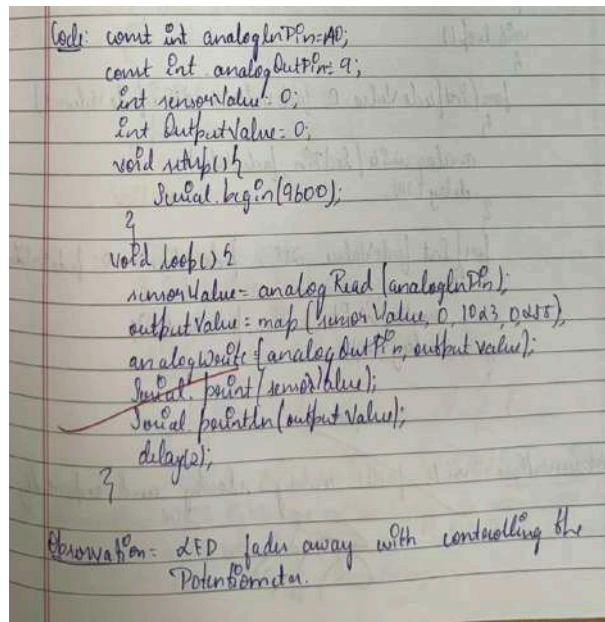 Code: const int analogInPin=A0;
const int analogOutPin=9;
int sensorValue=0;
int OutputValue=0;
void setup(){
Serial.begin(9600);
}
void loop(){
sensorValue=analogRead(analogInPin);
outputValue=map(sensorValue,0,1023,0,255),
analogWrite(analogOutPin,output value);
Serial.print(sensorValue);
Serial.println(output value);
delay(2);
}
Observation= LED fades away with controlling the
Potentiometer.